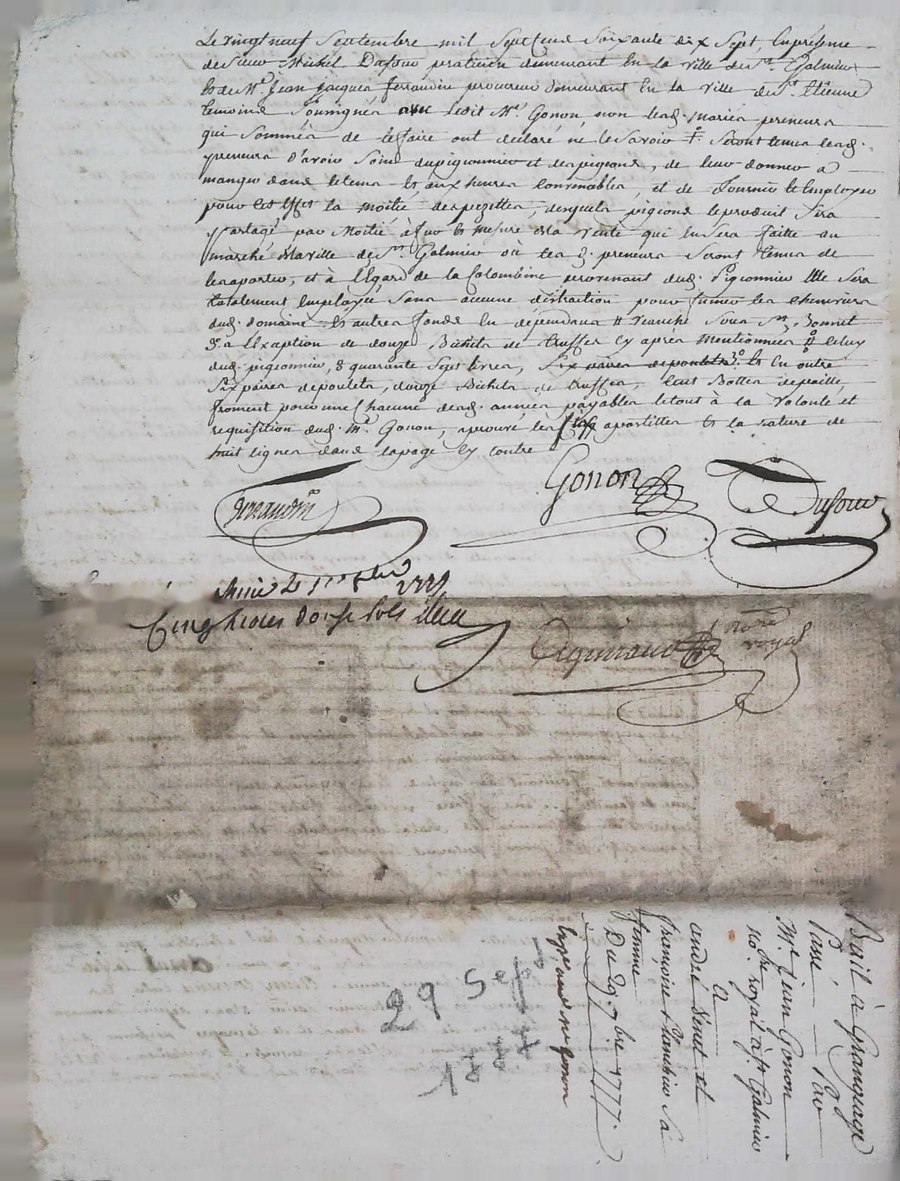 Le vingt neuf Septembre mil Sept Cent Soixante dix Sept, En présence
de Sieur Michel Dufour praticien demeurant En la ville de St. Galmier
Et de Mr. Jean Jacques ferrandin procureur demeurant En la ville de St. Etienne
temoins Soussignés avec Ledit Me. Gonon, non lesd. mariés preneurs
qui Sommés de le faire ont déclaré ne le Savoir Seront tenus lesd.
preneurs d'avoir Soins du pigeonnier et des pigeons, de leur donner a
manger dans le tems Et aux heures Convenables, et de Fournir Et Employer
pour Cet Effet la moitié des pezettes, desquels pigeons le produit Sera
partagé par Moitié à fur Et Mesure de la vente qui En Sera faitte au
marché de la ville de St. Galmier où les d. preneurs Seront tenus de
les aporter, et à l'Egard de la Colombine provenant dud. Pigeonnier Elle Sera
totalement Employée, Sans aucune distraction pour fumer les chenevières
dud. domaine Et autres fonds En dépendans
à l'Exeption de douze Bichets de truffes Cy après Mentionnés
dud. pigeonnier, & quarante Sept livres, Six paires de poulets Et En outre
Six paires de poulets, douze Bichets de truffes, Cent Bottes de paille,
froment pour une Chacune desd. années payables le tout à la volonté et
requisition dud. Me. Gonon, aprouvé les apostilles Et la rature de
huit lignes dans la page Cy contre
ferrandin Gonon Dufour
Cinq livres douze Sols
royal
Bail à Grangeage
Passé par
Me. Jean Gonon
nore. royal à St. Galmier
A
andré Venet et
françoise Planchier Sa
femme
Du 29. 7bre 1777.
29 Sept
1777